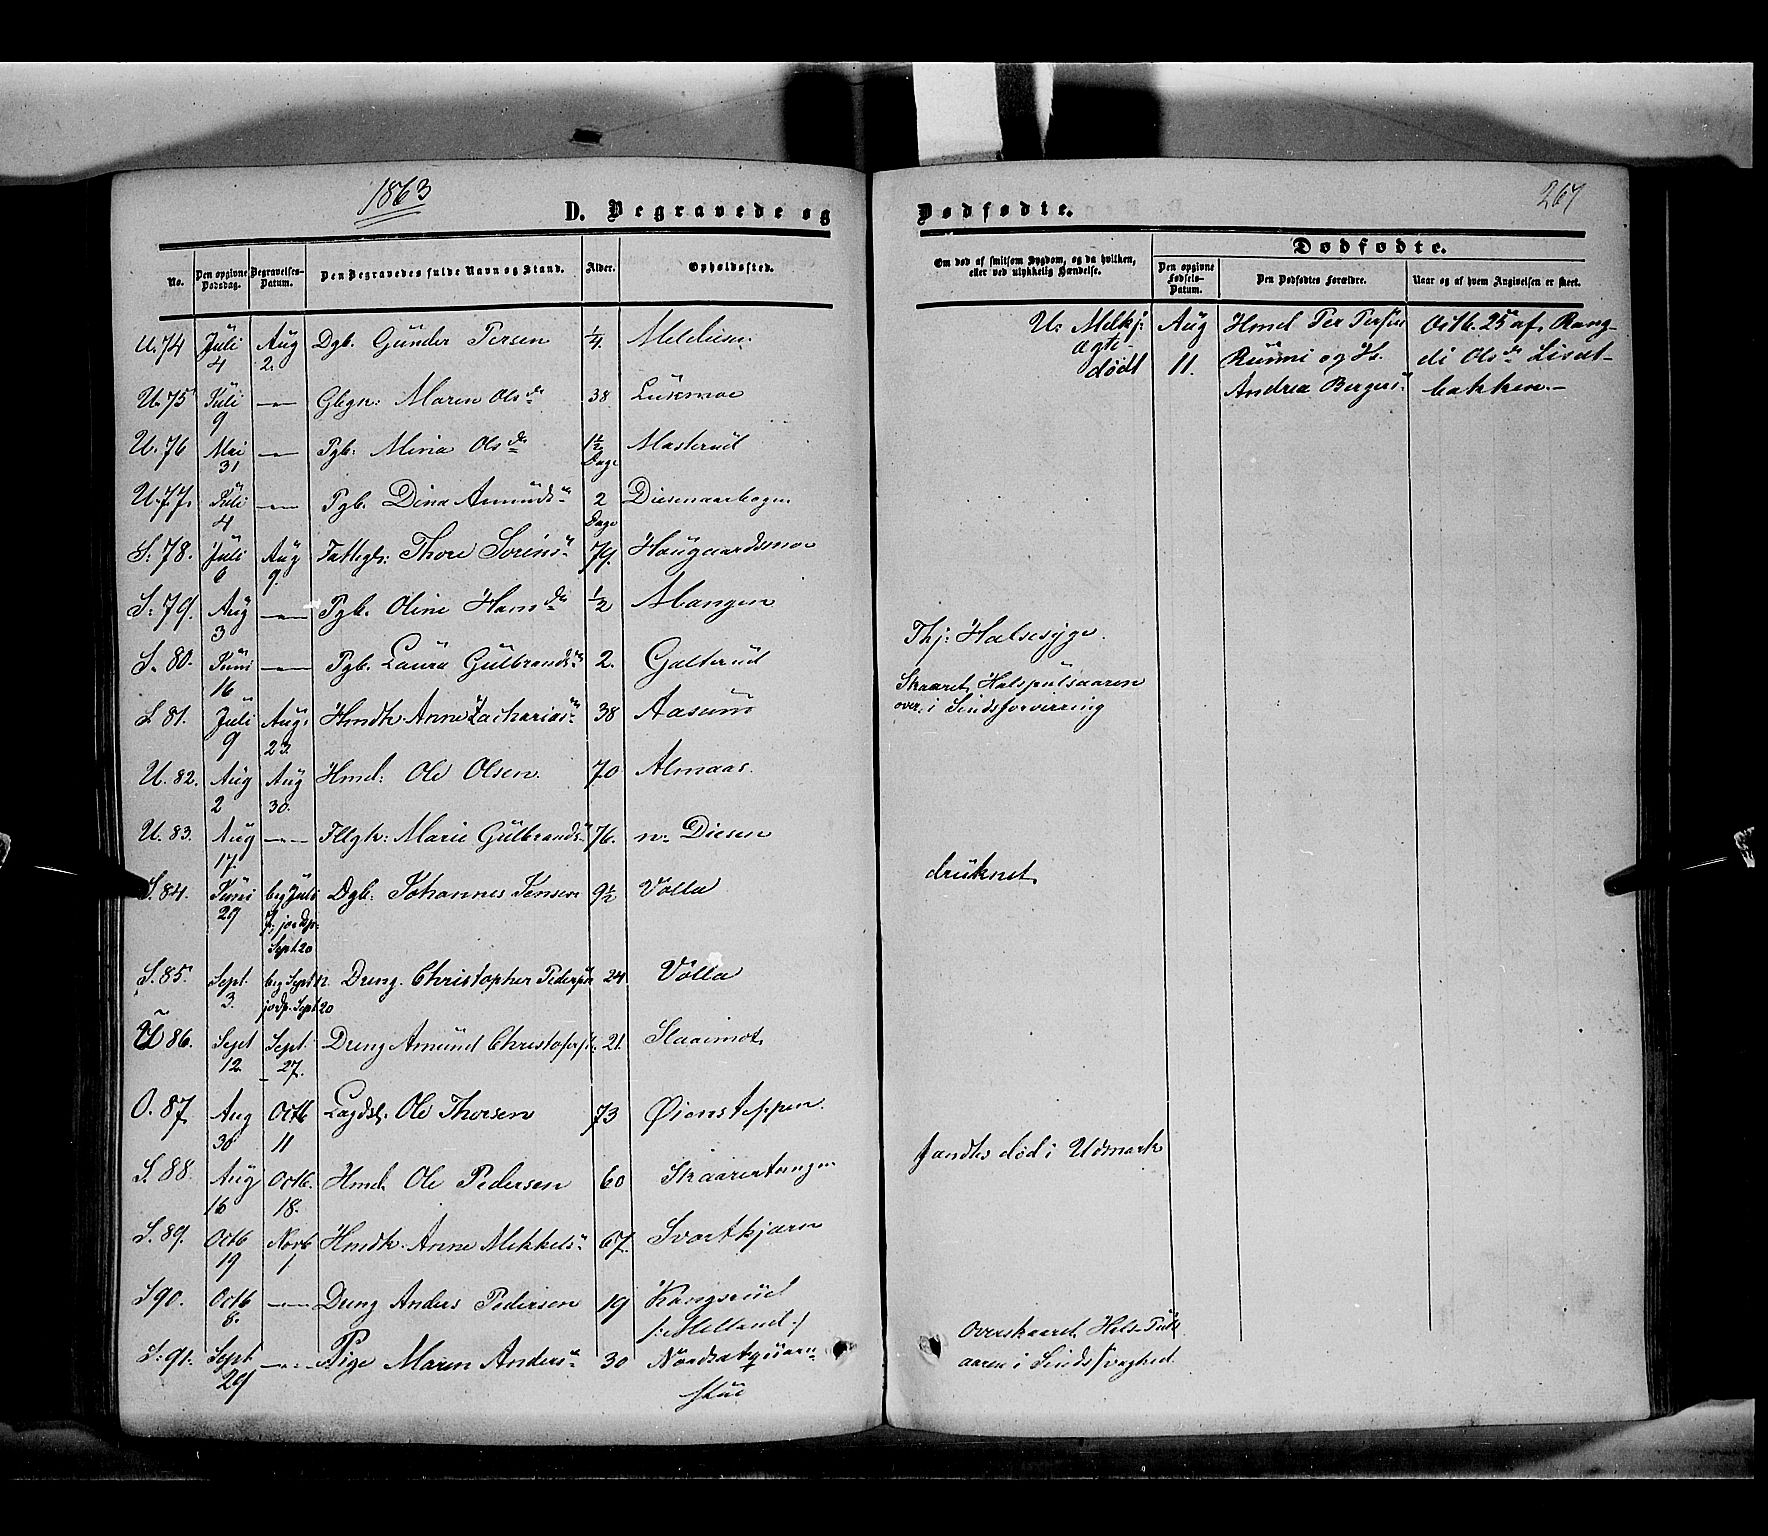 1863
267
D. Begravede og Dødfødte.
Dødfødte.
No.
Den opgivne Dødsdag.
Begravelses-Datum.
Den Begravedes fulde Navn og Stand.
Alder.
Opholdssted.
Om død af smitsom Sygdom, og da hvilken, eller ved ulykkelig Hændelse.
Den opgivne Fødsels-Datum.
Den Dødfødtes Forældre.
Naar og af hvem Angivelsen er skeet.
U. 74 Juli 4 Aug 2. Dgb. Gunder Persen 1/4
U. 75 Juli 9 —"— Maren Olsdr 38
U. 76 Mai 31 —"— Pgb. Mina Olsdr 1½ Dage Masterud
U. 77. Juli 4 —"— Pgb. Dina Amundsdr 2 Dage Diesenaabogen
S: 78. Juli 6 Aug 9. Thore 79. Haugaardsmoe
S: 79. Aug 3 —"— Pgb. Oline Hansdr 1/2 Mangen
S. 80. Juni 16 —"— Pgb. Laura Gulbrandsdr 2. Galterud
S. 81. Juli 9 Aug. 23. Hmdk. Anne Zachariasdr 38 Aasum
U. 82. Aug 2 Aug 30. Hmd: Ole Olsen. 70 Almaas.
U. 83. Aug 17. —"— Marie Gulbrandsdr 76. n. Diesen
S. 84. Juni 29 beg Juli 7. jordp: Sept 20 Dgb. Johannes Jensen 9½ Volla
S. 85. Sept. 3. beg Sept 12. jordp. Sept 20 Dreng. Christopher Pedersen 24 Volla
U 86. Sept 12. Sept. 27. Dreng Amund 21.
O. 87. Aug 30 Octb 11 Lægdsl. Ole Thorsen 73 Øiensteppen.
S. 88. Aug 16 Octb. 18. Hmd. Ole Pedersen 60
S. 89. Octb 19 Novb 1 Hmdk. Anne Mikkelsdr 67. Svartkjæren
S 90. Octb 8. —"— Dreng Anders Pedersen 19 Kongsrud
S: 91. Sept 29 —"— Pige Maren Andersdr 30
U: Aug 11.
ægte
dødf
Hmd Per Persen
og H.
Andrea
Octb. 25 af. Rang-
di Olsdr
bakken.—
Thj: Halsesyge.
Skaaret Halspulsaaren
over i Sindsforvirring
druknet
fandtes død i Udmark
Overskaaret Hals-Puls
aaren i Sindssvaghed.